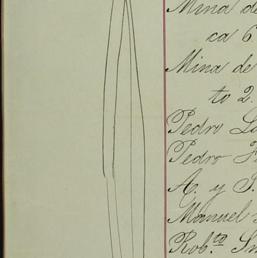 Mina de
ca 6
Mina de
to 2.
Pedro
Pedro
A. y
Manuel
Rob.to